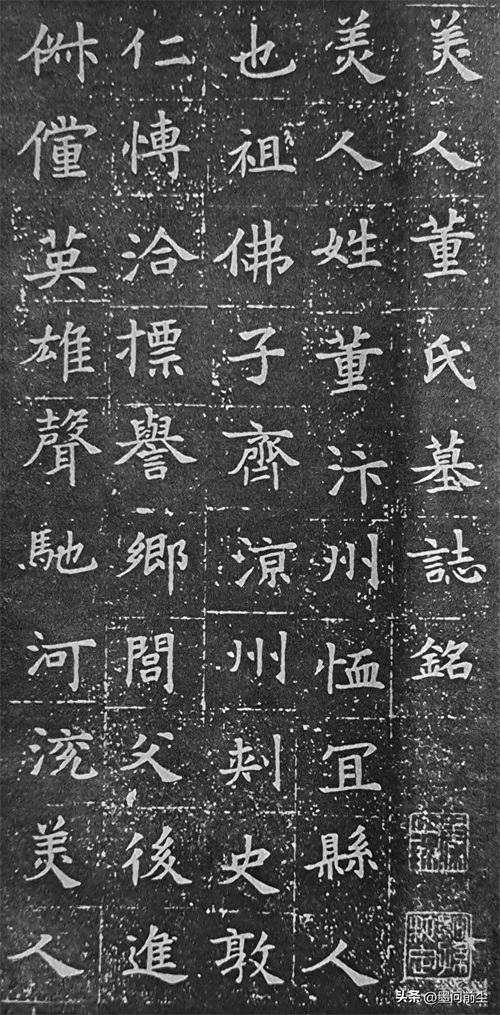 美人董氏墓誌銘
美人姓董汴州恤冝縣人
也祖佛子齊涼州刾史敦
仁愽洽摽譽鄉閭父後進
俶儻英雄聲馳河渷美人
头条 @墨问前尘